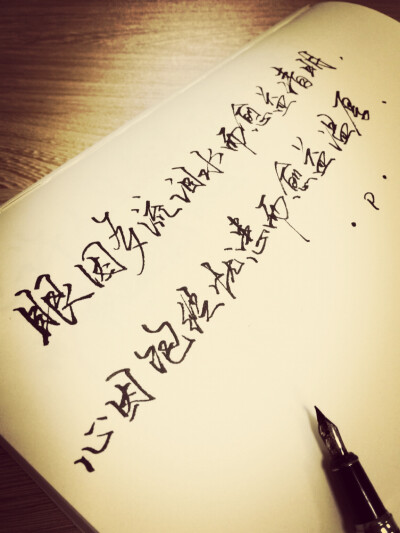 眼因多流泪水而愈益清明.
心因饱经忧患而愈益温厚.
. P .